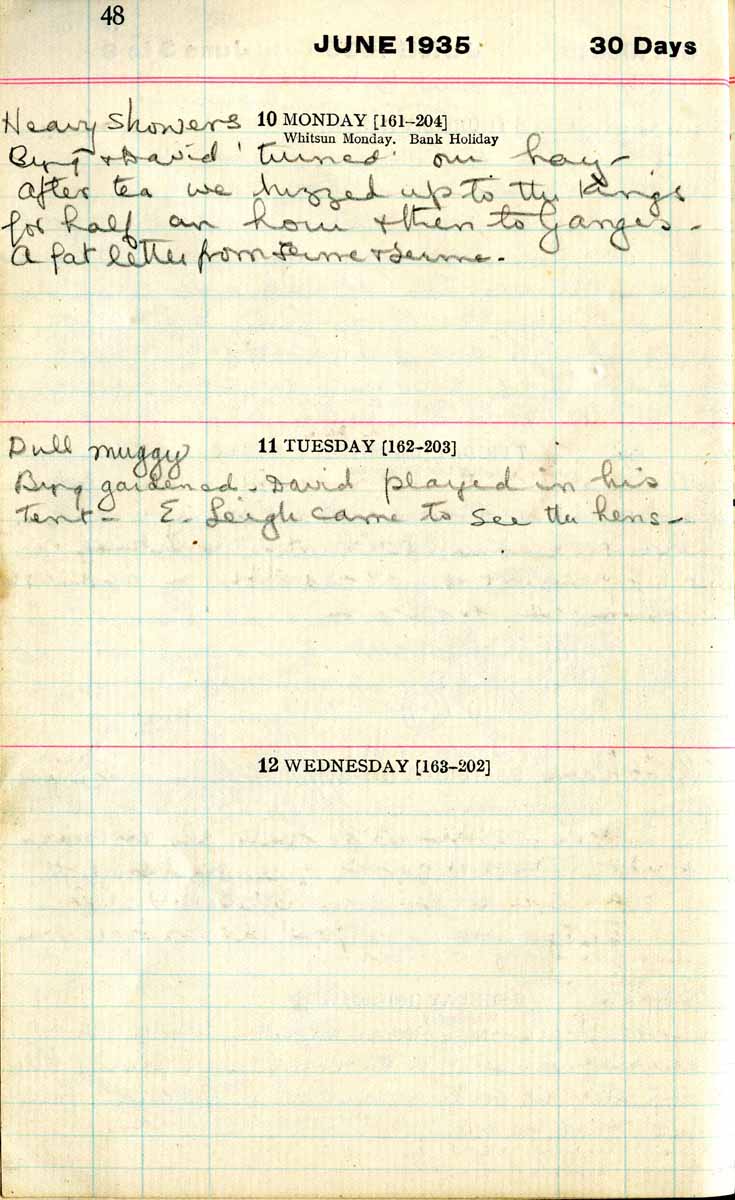 48
JUNE 1935 30 Days
Heavy Showers 10 MONDAY [161–204]
Whitsun Monday. Bank Holiday
& David 'turned' our hay –
After tea we hizzed up to the Kings
for half an hour & then to Ganges –
A fat letter from &
Dull muggy 11 TUESDAY [162–203]
gardened. David played in his
tent – E. Leigh came to see the hens –
12 WEDNESDAY [163–202]